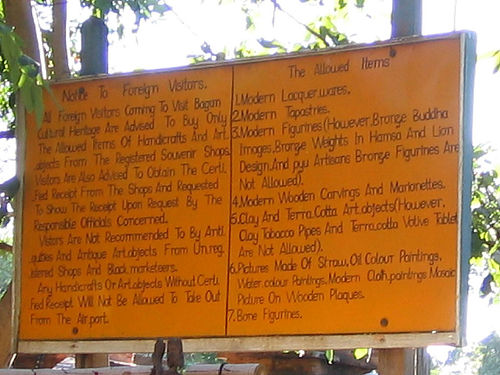 Notice To Foreign Visitors.
All Foreign Visitors Coming To Visit Bagan
Cultural Heritage Are Advised To Buy Only
The Allowed Items Of Handicrafts And Art.
objects From The Registered Souvenir Shops.
Visitors Are Also Advised To Obtain The Certi.
fied Receipt From The Shops And Requested
To Show The Receipt Upon Request By The
Responsible Officials Concerned.
Vistors Are Not Recommended To By Anti.
quities And Antique Art.objects From Un.reg.
istered Shops And Black.marketeers.
Any Handicrafts Or Art.objects Without Certi.
fied Receipt Will Not Be Allowed To Take Out
From The Air.port.
The Allowed Items
1.Modern Lacquer.wares.
2.Modern Tapastries.
3.Modern Figurines(However.Bronze Buddha
Images,Bronze Weights In Hamsa And Lion
Design.And pyu Artisans Bronze Figurines Are
Not Allowed).
4.Modern Wooden Carvings And Marionettes.
5.Clay And Terra.Cotta Art.objects(However,
Clay Tobacco Pipes And Terra.cotta Votive Tablet
Are Not Allowed).
6.Pictures Made Of Straw, Oil Colour Paintings,
Water.colour Paintings, Modern Cloth.paintings Mosaic
Picture On Wooden Plaques.
7.Bone Figurines.